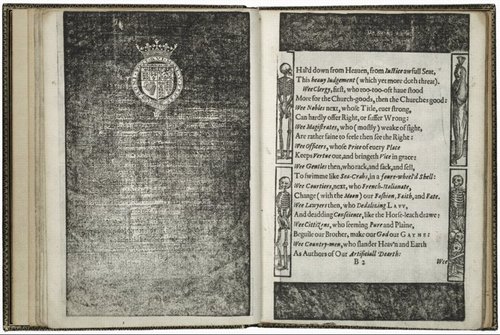 Hal'd down from Heaven, from Iustice awfull Seat,
This heavy Iudgement (which yet more doth threat).
Wee Clergy, first, who too-too-oft haue stood
More for the Church-goods, then the Churches good:
Wee Nobles next, whose Title, euer strong,
Can hardly offer Right, or suffer Wrong:
Wee Magistrates, who (mostly) weake of sight,
Are rather faine to feele then see the Right:
Wee Officers, whose Price of euery Place
Keeps Vertue out, and bringeth Vice in grace:
Wee Gentles then, who rack, and sack, and sell,
To swimme like Sea-Crabs, in a foure-wheel'd Shell:
Wee Courtiers, next, who French-Italianate,
Change (with the Moon) our Fashion, Faith, and Fate.
Wee Lawyers then, who Dedalizing LAVV,
And deadding Conscience, like the Horse-leach drawe:
Wee Cittizens, who seeming Pure and Plaine,
Beguile our Brother, make our God our GAYNE:
Wee Country-men, who slander Heav'n and Earth
As Authors of Our Artificiall Dearth:
B 2 Wee